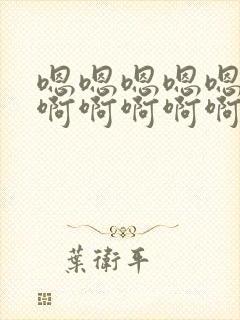 嗯嗯嗯嗯嗯
啊啊啊啊啊
葉衛平